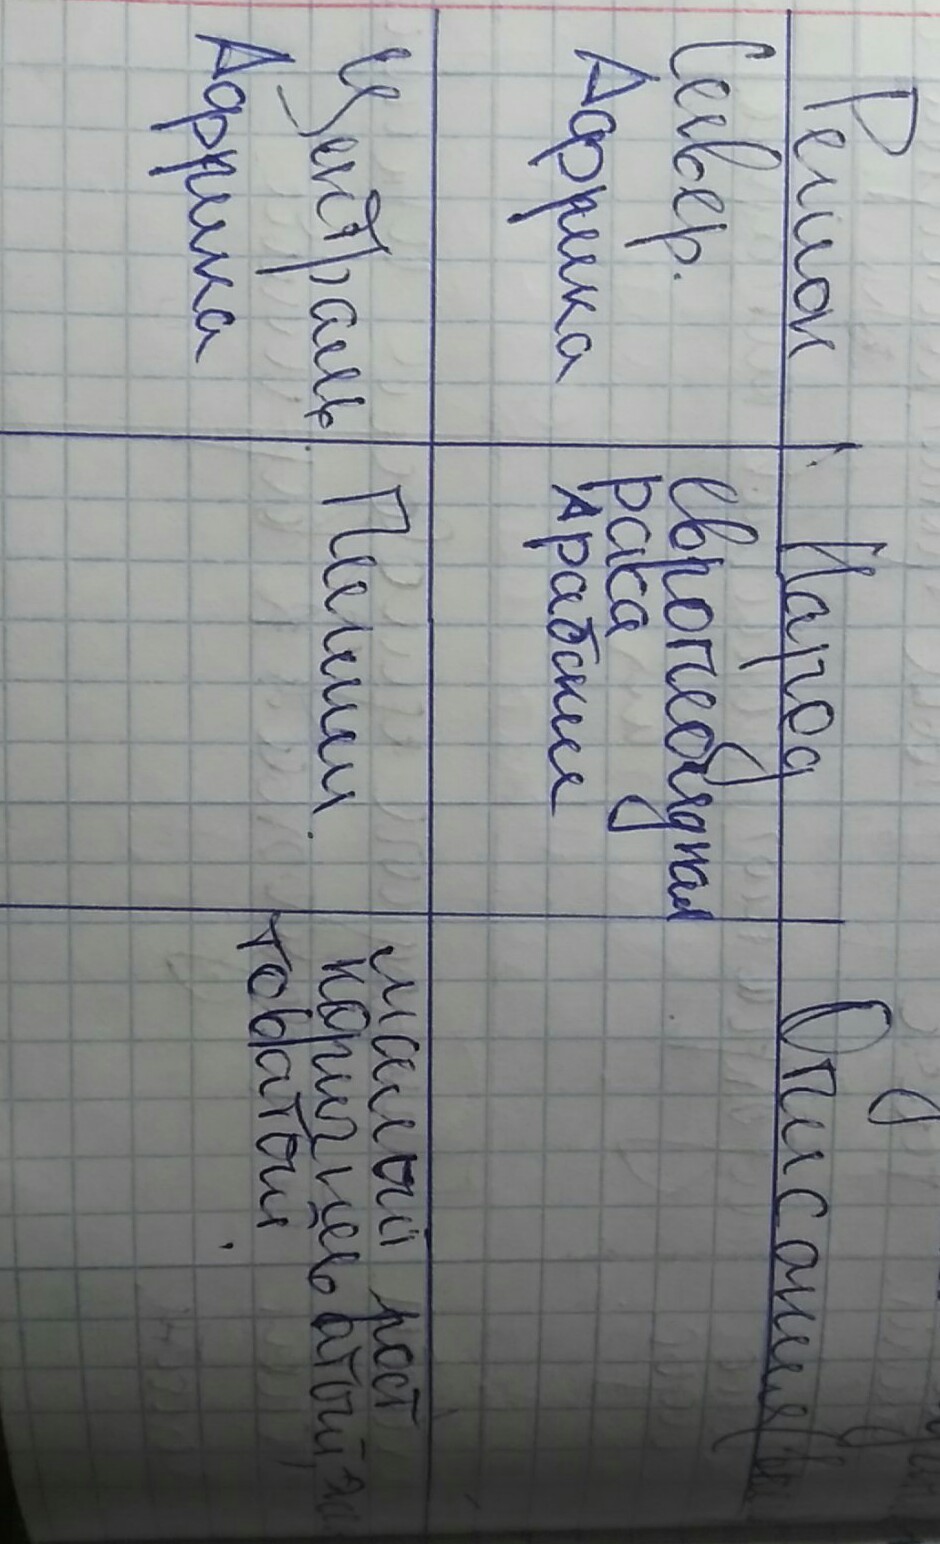 Регион
Народ
Описание
Север.
Африка
европеоидная
раса
Арабские
Централь.
Африка
Пигмеи.
малый рост
коричневатый, же
товатый.